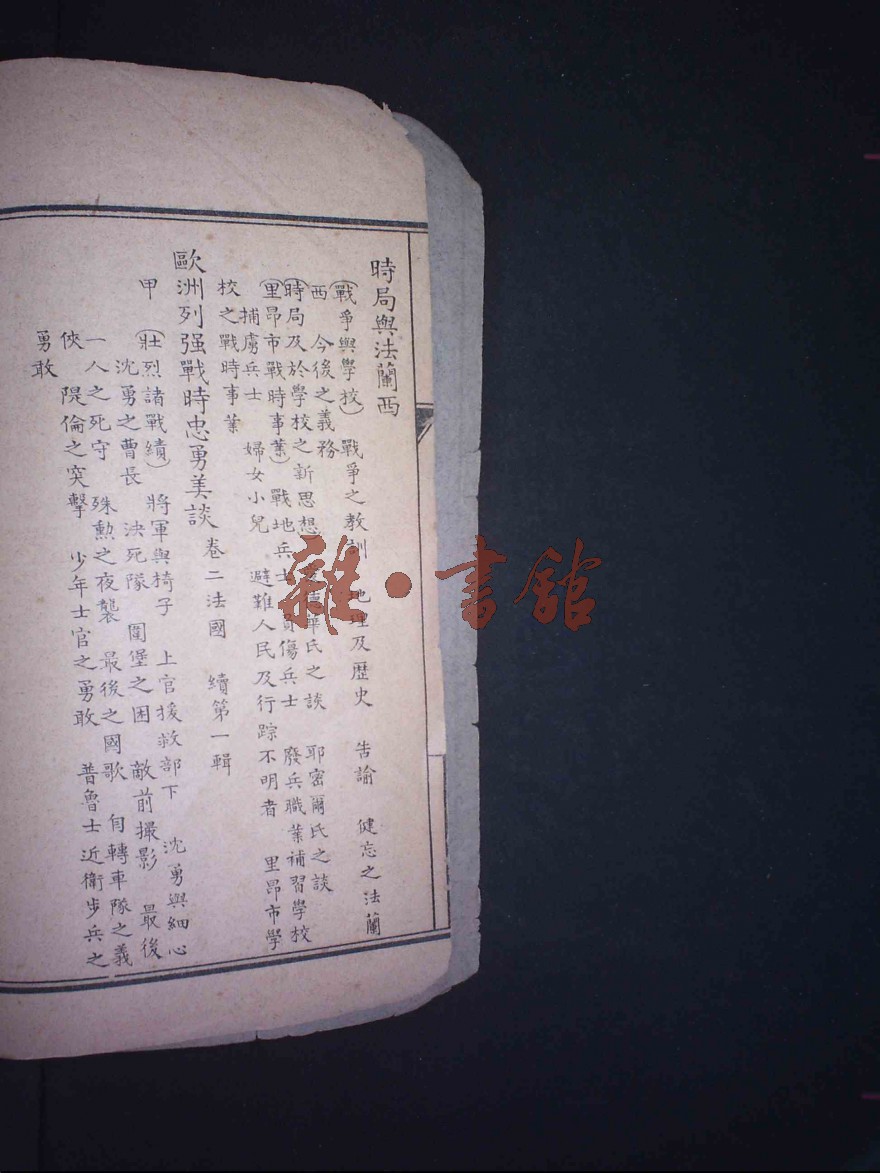 時局與法蘭西
(戰爭與學校) 戰爭之教訓 地理及歷史 告諭 健忘之法蘭
西 今後之義務
(時局及於學校之新思想 氏之談 耶密爾氏之談
(里昂市戰時事業) 戰地兵士 負傷兵士 廢兵職業補習學校
捕虜兵士 婦女小兒 避難人民及行踪不明者 里昂市學
校之戰時事業
歐洲列强戰時忠勇美談 卷二法國 續第一輯
甲 (壯烈諸戰績) 將軍與椅子 上官援救部下 沈勇與細心
沈勇之曹長 決死隊 圍堡之困 敵前撮影 最後
一人之死守 殊勲之夜襲 最後之國歌 自轉車隊之義
俠 隄倫之突擊 少年士官之勇敢 普魯士近衛步兵之
勇敢
雜·書館